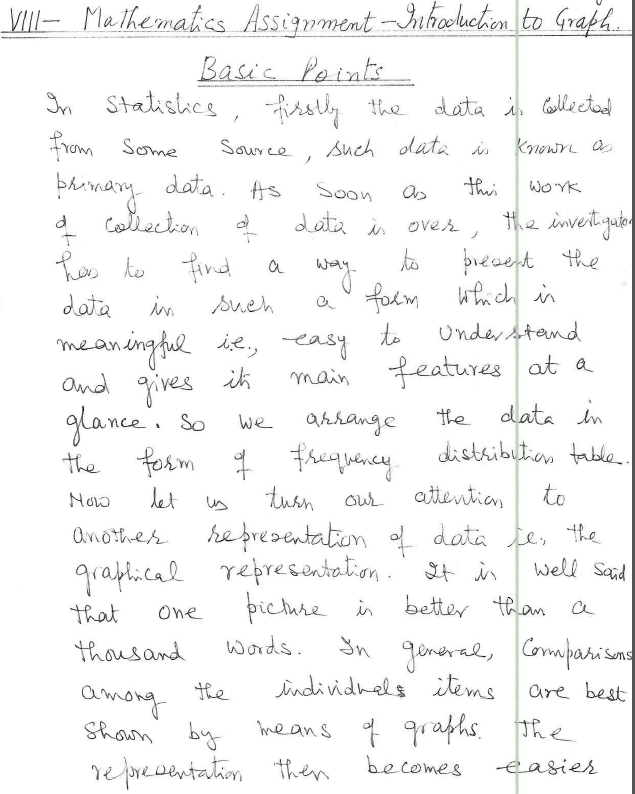 VIII- Mathematics Assignment - Introduction to Graph.
Basic Points
In Statistics, firstly the data is Collected
from Some Source, such data is Known as
primary data. As Soon as this work
of Collection of data is over, the investigator
has to find a way to present the
data in such a form Which is
meaningful i.e., easy to Understand
and gives its main features at a
glance. So we arrange the data in
the form of frequency distribution table.
Now let us turn our attention to
another representation of data i.e., the
graphical representation. It is well Said
that one picture is better than a
thousand Words. In general, Comparisons
among the individuals items are best
Shown by means of graphs. The
representation then becomes easier